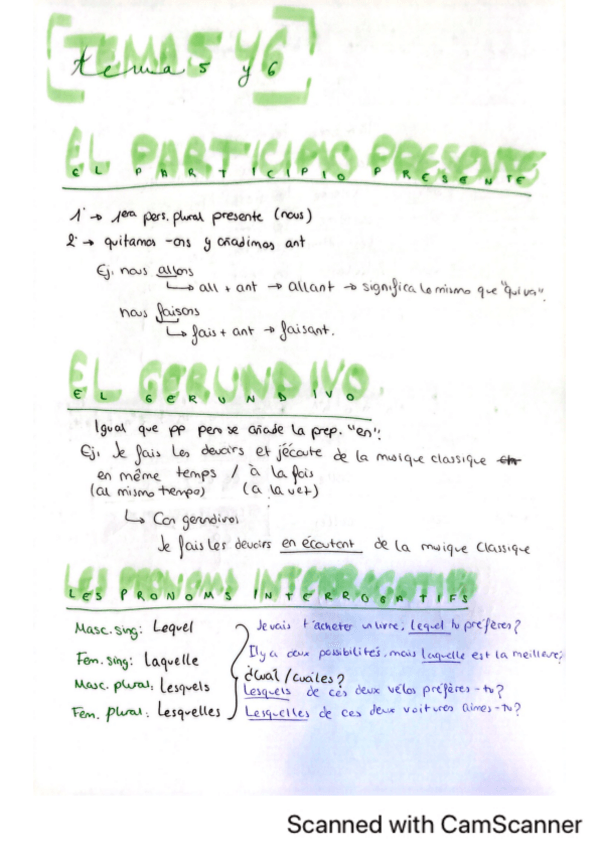 TEMA 5 Y 6
tema 5 y 6
EL PARTICIPIO PRESENTE
EL PARTICIPIO PRESENTE
1º → 1era pers. plural presente (nous)
2º → quitamos -ons y añadimos ant
Ej. nous allons
↳ all + ant → allant → significa lo mismo que "qui va".
nous faisons
↳ fais + ant → faisant.
EL GERUNDIVO.
EL GERUNDIVO
Igual que pp pero se añade la prep. "en".
Ej. Je fais les devoirs et j'écoute de la musique classique
en même temps / à la fois
(al mismo tiempo) (a la vez)
↳ Con gerundivo:
Je fais les devoirs en écoutant de la musique classique
LES PRONOMS INTERROGATIFS
LES PRONOMS INTERROGATIFS
Masc. sing: Lequel Je vais t'acheter un livre, lequel tu préfères?
Fem. sing: Laquelle Il y a deux possibilités, mais laquelle est la meilleure?
¿Cuál/cuáles?
Masc. plural: Lesquels Lesquels de ces deux vélos préfères-tu?
Fem. plural: Lesquelles Lesquelles de ces deux voitures aimes-tu?
Scanned with CamScanner